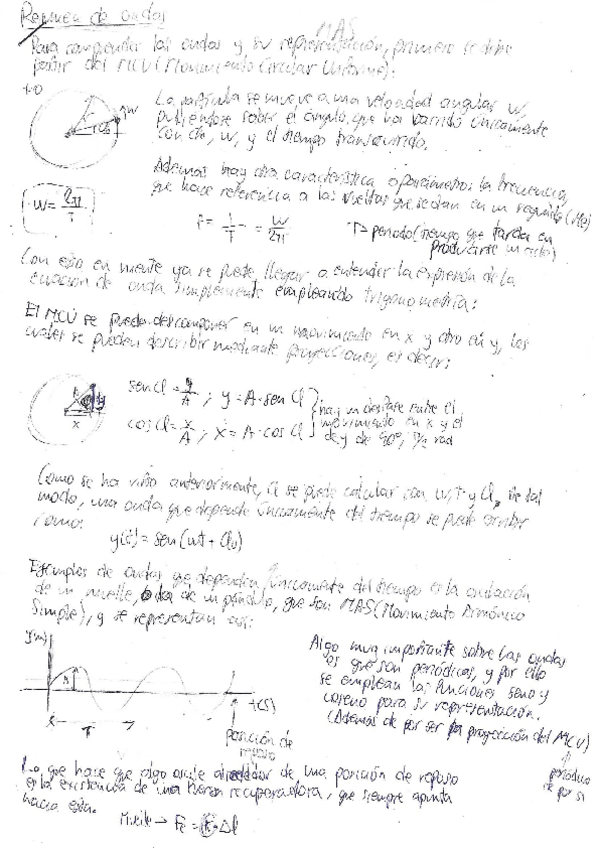 Resumen de ondas
MAS
Para comprender las ondas y su representación, primero se debe
partir del MCU (Movimiento Circular Uniforme):
t=0
La partícula se mueve a una velocidad angular w,
pudiéndose saber el ángulo que ha barrido únicamente
con w, y el tiempo transcurrido.
Además hay otra característica o parámetro: la frecuencia,
que hace referencia a las vueltas que se dan en un segundo (Hz)
w = 2π/T
F = 1/T = w/2π
T → periodo (tiempo que tarda en
producirse un ciclo)
Con esto en mente ya se puede llegar a entender la expresión de la
ecuación de onda simplemente empleando trigonometría:
El MCU se puede descomponer en un movimiento en x y otro en y, los
cuales se pueden describir mediante proyecciones, es decir:
sen α = y/A ; y = A·sen α
cos α = x/A ; x = A·cos α
hay un desfase entre el
movimiento en x y el
de y de 90º, π/2 rad
A
y
x
Como se ha visto anteriormente, α se puede calcular con w, t y α₀, de tal
modo, una onda que depende únicamente del tiempo se puede escribir
como:
y(t) = sen(wt + α₀)
Ejemplos de ondas que dependen únicamente del tiempo es la oscilación
de un muelle, o la de un péndulo, que son MAS (Movimiento Armónico
Simple), y se representan así:
y(m)
A
T
t(s)
posición de
reposo
Algo muy importante sobre las ondas
es que son periódicas, y por ello
se emplean las funciones seno y
coseno para su representación.
(Además de por ser la proyección del MCU)
periódico
de por si
Lo que hace que algo oscile alrededor de una posición de reposo
es la existencia de una fuerza recuperadora, que siempre apunta
hacia esta.
Muelle → Fe = K·Δl